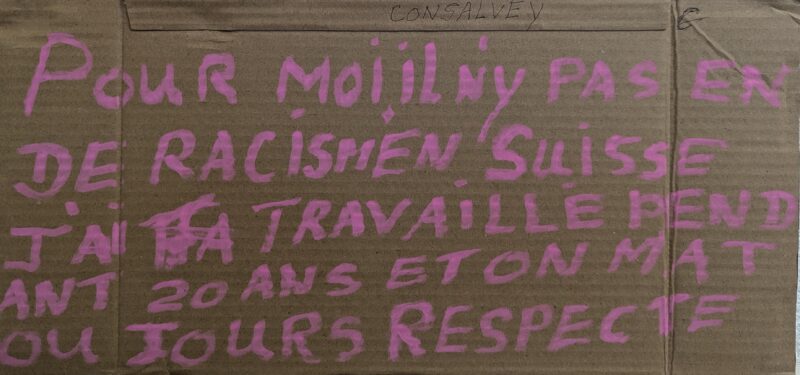 CONSALVEY
POUR MOi iL N'y PAS EN
DE RACISMEN SUiSSE
J'Ai TRAVAiLLE PEND
ANT 20 ANS ET ON MAT
OU JOURS RESPECTE